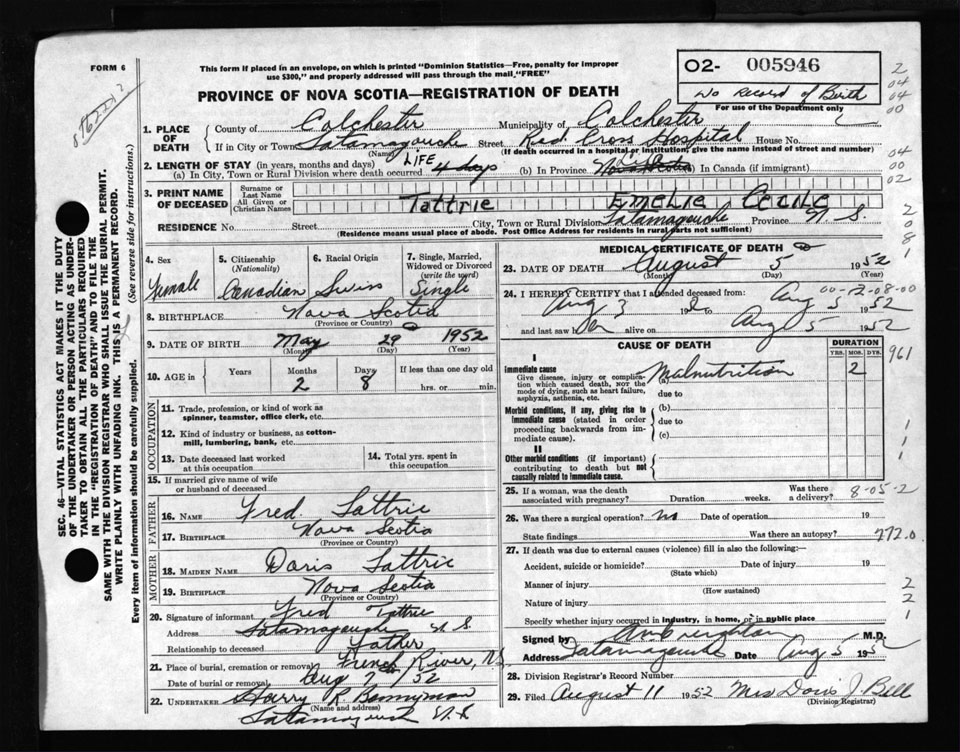 FORM 6
This form if placed in an envelope, on which is printed "Dominion Statistics—Free, penalty for improper
use $300," and properly addressed will pass through the mail, "FREE"
02- 005946
No Record of Birth
For use of the Department only
PROVINCE OF NOVA SCOTIA—REGISTRATION OF DEATH
1. PLACE OF DEATH
County of Colchester Municipality of Colchester
If in City or Town Tatamagouche Street Red Cross Hospital House No.
(Name) (If death occurred in a hospital or institution, give the name instead of street and number)
2. LENGTH OF STAY (in years, months and days) LIFE
(a) In City, Town or Rural Division where death occurred 4 days (b) In Province Nova Scotia (c) In Canada (if immigrant)
3. PRINT NAME OF DECEASED
Surname or Last Name
All Given or Christian Names
Tattrie EMELIE CECILE
RESIDENCE No. Street City, Town or Rural Division Tatamagouche Province N.S.
(Residence means usual place of abode. Post Office Address for residents in rural parts not sufficient)
4. Sex
Female
5. Citizenship (Nationality)
Canadian
6. Racial Origin
Swiss
7. Single, Married, Widowed or Divorced (write the word)
Single
8. BIRTHPLACE Nova Scotia
(Province or Country)
9. DATE OF BIRTH May 29 1952
(Month) (Day) (Year)
10. AGE in Years Months Days If less than one day old
2 8 hrs. or min.
OCCUPATION
11. Trade, profession, or kind of work as spinner, teamster, office clerk, etc.
12. Kind of industry or business, as cotton-mill, lumbering, bank, etc.
13. Date deceased last worked at this occupation
14. Total yrs. spent in this occupation
15. If married give name of wife or husband of deceased
FATHER
16. NAME Fred. Tattrie
17. BIRTHPLACE Nova Scotia
(Province or Country)
MOTHER
18. MAIDEN NAME Doris Tattrie
19. BIRTHPLACE Nova Scotia
(Province or Country)
20. Signature of informant Fred Tattrie
Address Tatamagouche N.S.
Relationship to deceased Father
21. Place of burial, cremation or removal French River, N.S.
Date of burial or removal Aug 7/52
22. UNDERTAKER Harry R. Bonnyman
(Name and address)
Tatamagouche N.S.
MEDICAL CERTIFICATE OF DEATH
23. DATE OF DEATH August 5 1952
(Month) (Day) (Year)
24. I HEREBY CERTIFY that I attended deceased from:
00-12-08-00
Aug 3 1952 to Aug 5 1952
and last saw her alive on Aug 5 1952
CAUSE OF DEATH
DURATION
YRS. MOS. DYS.
I
Immediate cause
Give disease, injury or complication which caused death, NOT the mode of dying, such as heart failure, asphyxia, asthenia, etc.
(a) Malnutrition 2
due to
Morbid conditions, if any, giving rise to immediate cause (stated in order proceeding backwards from immediate cause).
(b)
due to
(c)
II
Other morbid conditions (if important) contributing to death but not causally related to immediate cause.
25. If a woman, was the death associated with pregnancy? Duration weeks. Was there a delivery? 8-05-2
26. Was there a surgical operation? no Date of operation 19
State findings Was there an autopsy? 772.0
27. If death was due to external causes (violence) fill in also the following:—
Accident, suicide or homicide? Date of injury 19
(State which)
Manner of injury
(How sustained)
Nature of injury
Specify whether injury occurred in industry, in home, or in public place
Signed by Creighton M.D.
Address Tatamagouche Date Aug 5 1952
28. Division Registrar's Record Number
29. Filed August 11 1952 Mrs Doris J. Bell
(Division Registrar)
SEC. 46— VITAL STATISTICS ACT MAKES IT THE DUTY
OF THE UNDERTAKER OR PERSON ACTING AS UNDER-
TAKER TO OBTAIN ALL THE PARTICULARS REQUIRED
IN THE "REGISTRATION OF DEATH" AND TO FILE THE
SAME WITH THE DIVISION REGISTRAR WHO SHALL ISSUE THE BURIAL PERMIT.
WRITE PLAINLY WITH UNFADING INK. THIS IS A PERMANENT RECORD.
Every item of information should be carefully supplied. (See reverse side for instructions.)
2
04
04
00
04
00
02
2
0
8
1
961
1
1
1
2
2
1